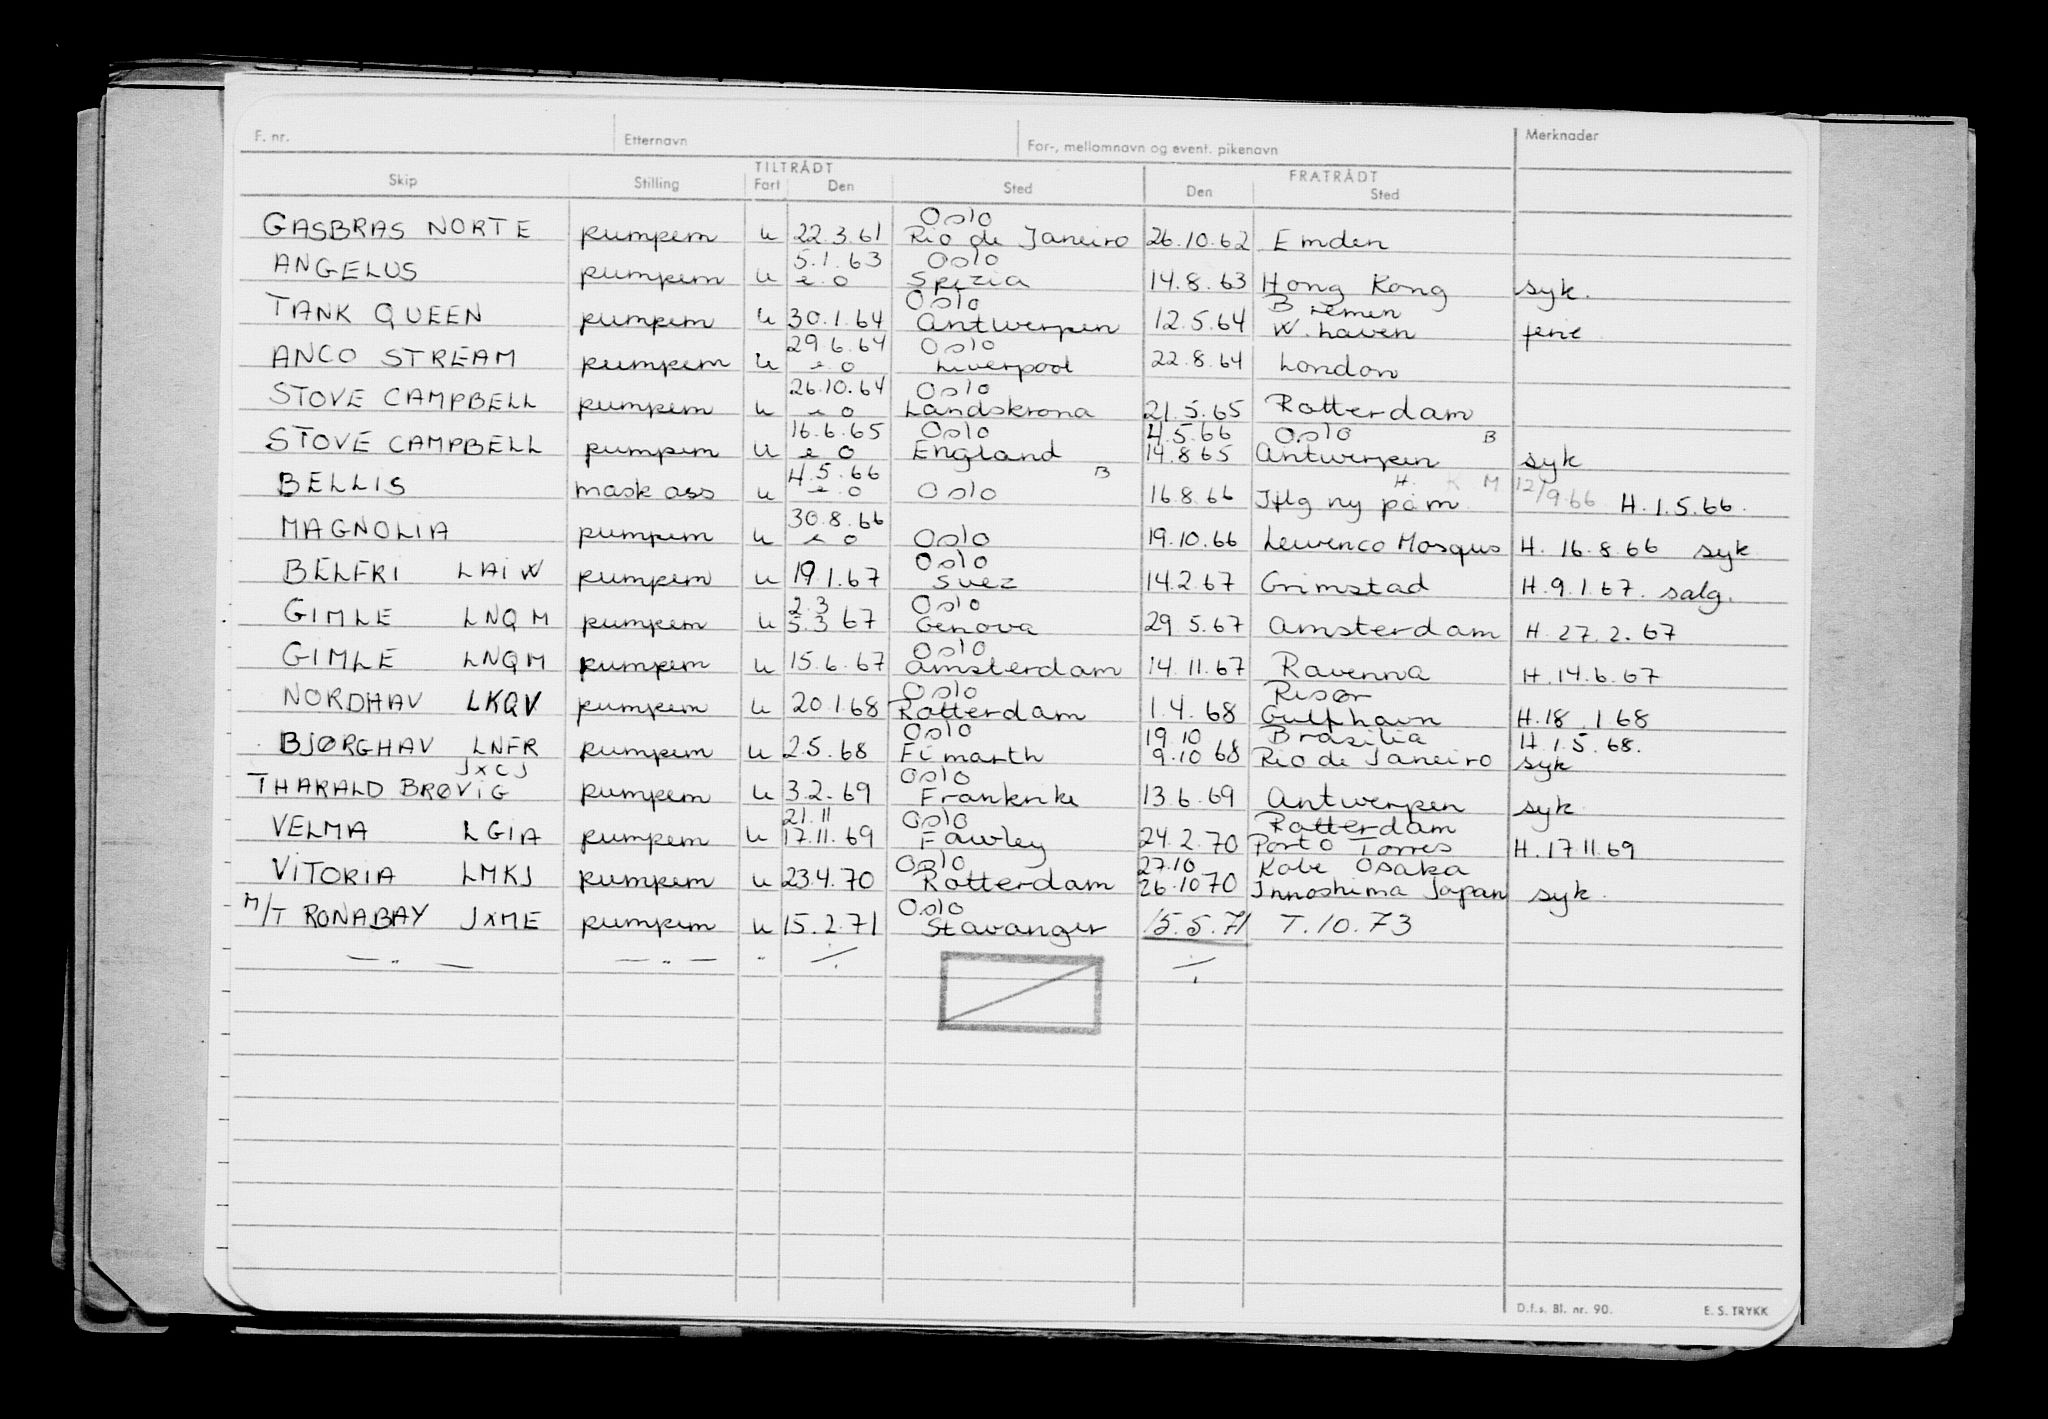 F. nr. Etternavn For-, mellomnavn og event. pikenavn Merknader
TILTRÅDT FRATRÅDT
Skip Stilling Fart Den Sted Den Sted
Oslo
GASBRAS NORTE pumpem u 22.3.61 Rio de Janeiro 26.10.62 Emden
5.1.63 Oslo
ANGELUS pumpem u e.o Spezia 14.8.63 Hong Kong syk.
Oslo Bremen
TANK QUEEN pumpem u 30.1.64 Antwerpen 12.5.64 W.haven ferie
29.6.64 Oslo
ANCO STREAM pumpem u e o Liverpool 22.8.64 London
26.10.64 Oslo
STOVE CAMPBELL pumpem u e o Landskrona 21.5.65 Rotterdam
16.6.65 Oslo 4.5.66 Oslo B
STOVE CAMPBELL pumpem u e o England 14.8.65 Antwerpen syk
4.5.66 B H. K M
BELLIS mask ass u e.o Oslo 16.8.66 Iflg ny påm 12/9.66 H.1.5.66.
30.8.66
MAGNOLIA pumpem u e o Oslo 19.10.66 Lewenco Mosqus H. 16.8.66 syk
Oslo
BELFRI LAIW pumpem u 19.1.67 Suez 14.2.67 Grimstad H.9.1.67. salg.
2.3 Oslo
GIMLE LNQM pumpem u 5.3 67 Genova 29.5.67 Amsterdam H.27.2.67
Oslo
GIMLE LNQM pumpem u 15.6.67 Amsterdam 14.11.67 Ravenna H.14.6.67
Oslo Risør
NORDHAV LKQV pumpem u 20.1.68 Rotterdam 1.4.68 Gulfhavn H.18.1 68
Oslo 19.10 Brasilia H.1.5.68.
BJØRGHAV LNFR pumpem u 2.5.68 Fimarth 9.10 68 Rio de Janeiro syk
JXCJ Oslo
THARALD BRØVIG pumpem u 3.2.69 Frankrike 13.6.69 Antwerpen syk
21.11 Oslo Rotterdam
VELMA LGIA pumpem u 17.11.69 Fawley 24.2.70 Porto Torres H.17 11.69
Oslo 27.10 Kobe Osaka
VITORIA LMKJ pumpem u 23.4.70 Rotterdam 26.10 70 Innoshima Japan syk.
Oslo
M/T RONABAY JXME pumpem u 15.2.71 Stavanger 15.5.71 T.10.73
— " — — " — " ./. ./.
D.f.s. Bl. nr. 90. E. S. TRYKK